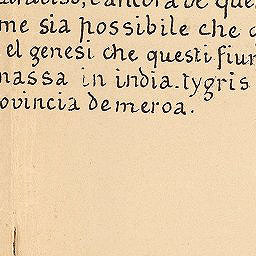 ancora de que
me sia possibile che
el genesi che questi fiu
massa in india. tygris
ovincia de meroa.